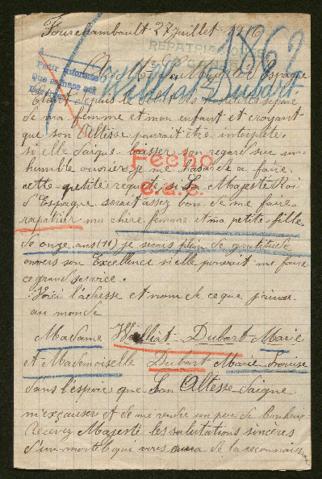 Fourchambault 27 juillet 1916
REPATRIACION
1862
Walliat Dubart
Espagne
Etant depuis le
de ma femme et mon enfant et croyant
que son Altesse pourrait être
si elle daigne laisser son regard sur un
humble ouvrier je me a faire
cette petite requête si sa Majesté Roi
d'Espagne serait assez bon de me faire
Fecho
rapatrier ma chère femme et ma petite fille
de onze ans (11) je serais plein de gratitude
envers son Excellence si elle pourrait me faire
ce grand service.
Voici l'adresse et nom de ce que j'aime
au monde
Madame Walliat Dubart Marie
et Mademoiselle Dubart Marie Louise
dans l'espoir que Son Altesse daigne
m'excuser et de me rendre un peu de bonheur
Recevez Majesté les salutations sincères
d'un mortel que vous aura de la reconnaissance